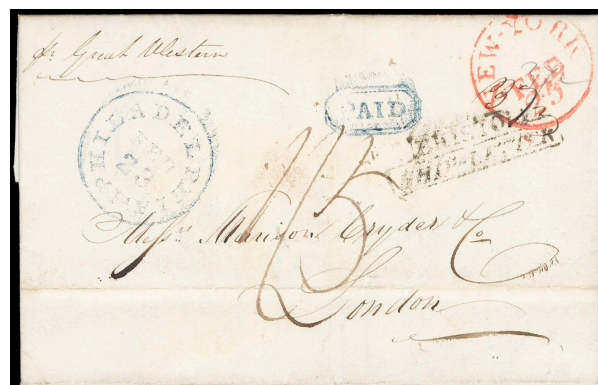 pr Great Western
NEW-YORK
FEB
25
PAID
PHILADELPHIA
FEB
BRISTOL
SHIP-LETTER
Messrs Morrison Cryder & Co
London